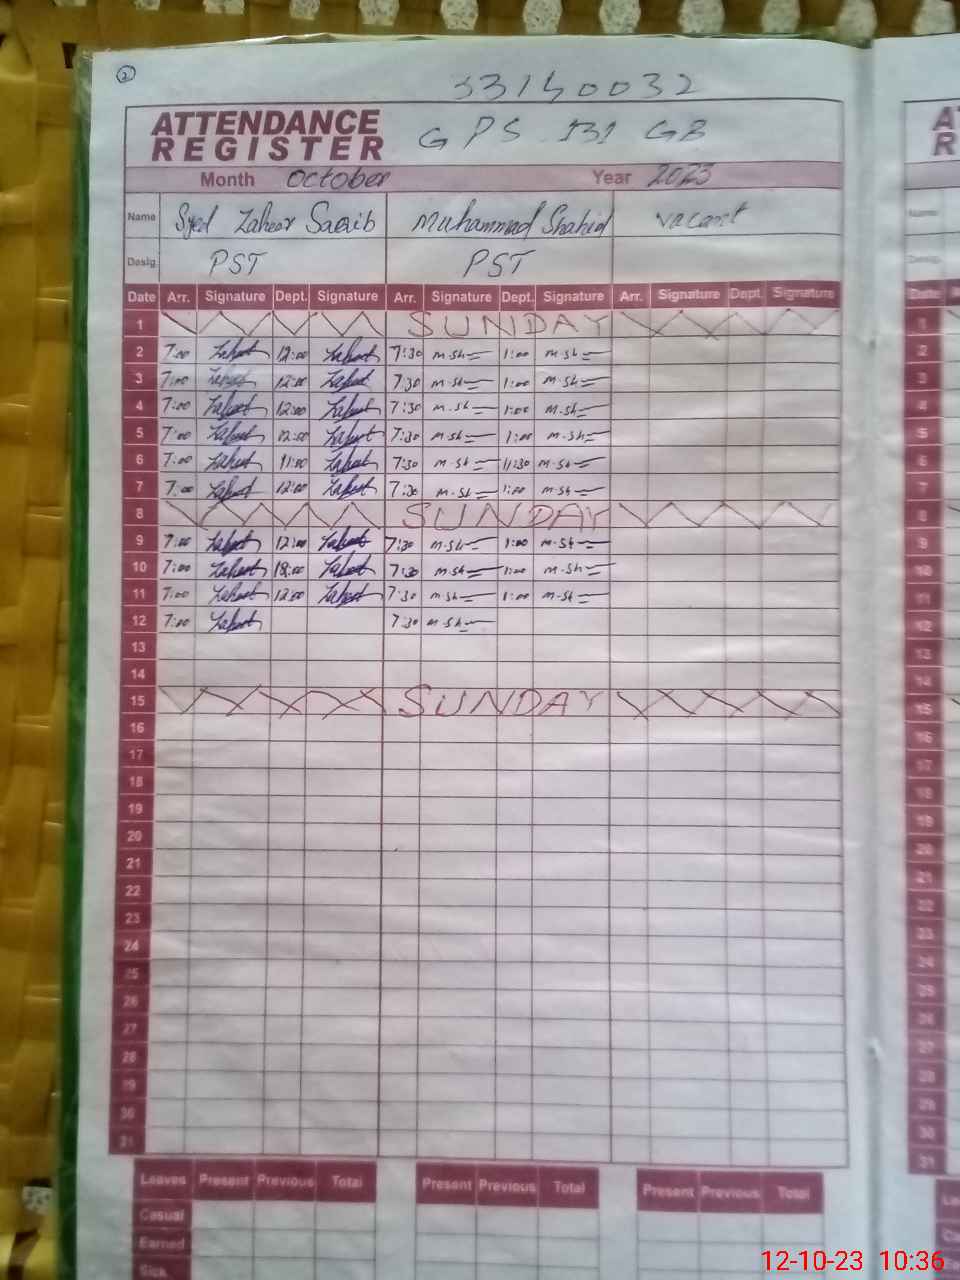 2
33140032
ATTENDANCE
REGISTER
GPS 131 GB
Month October Year 2023
Name Syed Zaheer Saqib Muhammad Shahid vacant
Desig. PST PST
Date Arr. Signature Dept. Signature Arr. Signature Dept. Signature Arr. Signature Dept. Signature
1 SUNDAY
2 7:00 12:00 7:30 m.sh 1:00 m.sh
3 7:00 12:00 7:30 m.sh 1:00 m.sh
4 7:00 12:00 7:30 m.sh 1:00 m.sh
5 7:00 12:00 7:30 m.sh 1:00 m.sh
6 7:00 11:00 7:30 m.sh 11:30 m.sh
7 7:00 12:00 7:30 m.sh 1:00 m.sh
8 SUNDAY
9 7:00 12:00 7:30 m.sh 1:00 m.sh
10 7:00 7:30 m.sh 1:00 m.sh
11 7:00 12:00 7:30 m.sh 1:00 m.sh
12 7:00 7:30 m.sh
13
14
15 SUNDAY
16
17
18
19
20
21
22
23
24
25
26
27
28
29
30
31
Leaves Present Previous Total Present Previous Total Present Previous Total
Casual
Earned
Sick
12-10-23 10:36